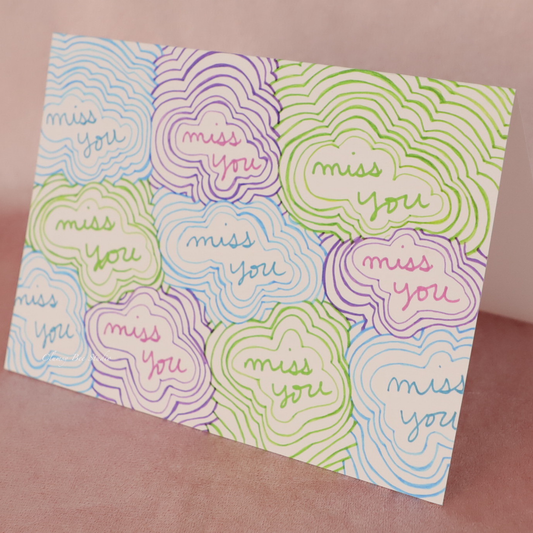 miss
you
miss
you
miss
you
miss
you
miss
you
miss
you
miss
you
miss
you
miss
you
miss
you